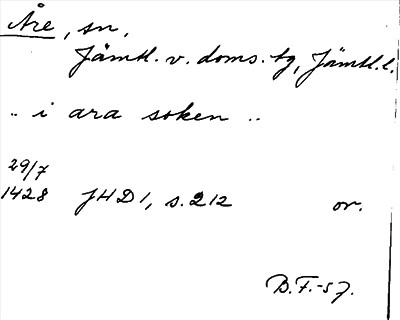 Åre, sn.
Jämtl. v. doms. tg, Jämtl. l.
.. i ara soken ..
29/7
1428 JHD 1, s. 212 or.
B.F.-57.